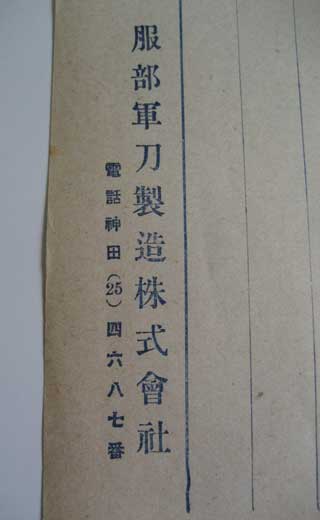 服部軍刀製造株式會社
電話神田(25)四六八七番